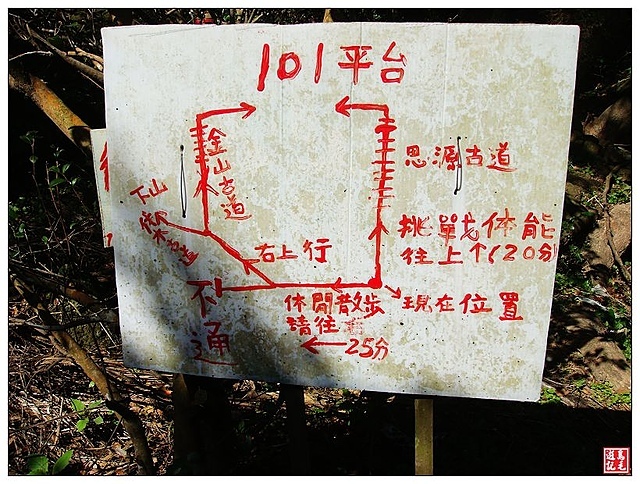 101平台
金山古道
思源古道
下山
樹木古道
挑戰体能
往上↑(20分
右上行
不通
休閒散步
請往
←25分
現在位置